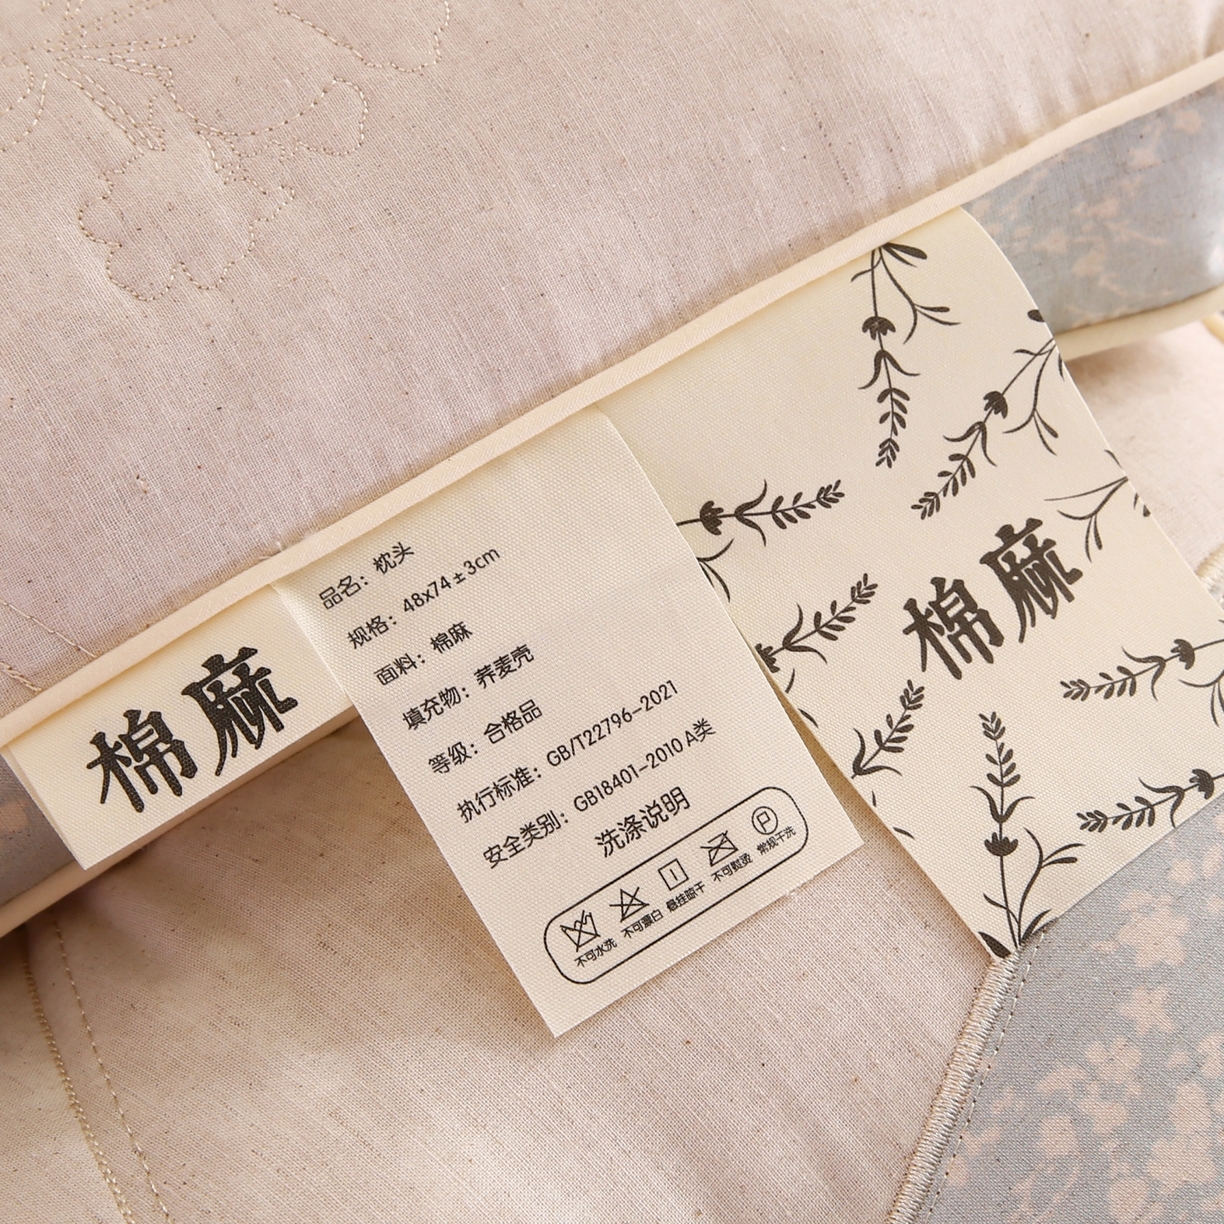 棉麻
品名：枕头
规格：48x74±3cm
面料：棉麻
填充物：荞麦壳
等级：合格品
执行标准：GB/T22796-2021
安全类别：GB18401-2010 A类
洗涤说明
P
不可水洗 不可漂白 悬挂晾干 不可熨烫 常规干洗
棉麻